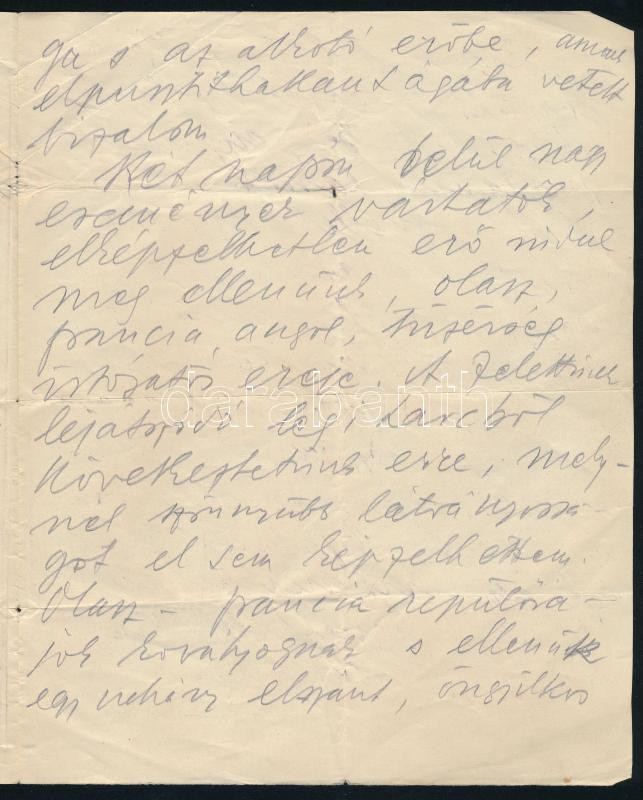 ga s az alkotó erőbe, annak
elpusztithatlanságába vetett
bizalom
Két napon belül nagy
események várhatók,
elképzelhetlen erő vidul
meg ellenünk, olasz,
francia, angol, tüzérség
ereje. A felettünk
lejátszódó légi harcból
következtetünk erre, mely-
nél szörnyübb látványossá-
got el sem képzelhettem.
Olasz - francia repülőra-
jok kovályognak s ellenük
egy néhány elszánt, öngyilkos
darabanth